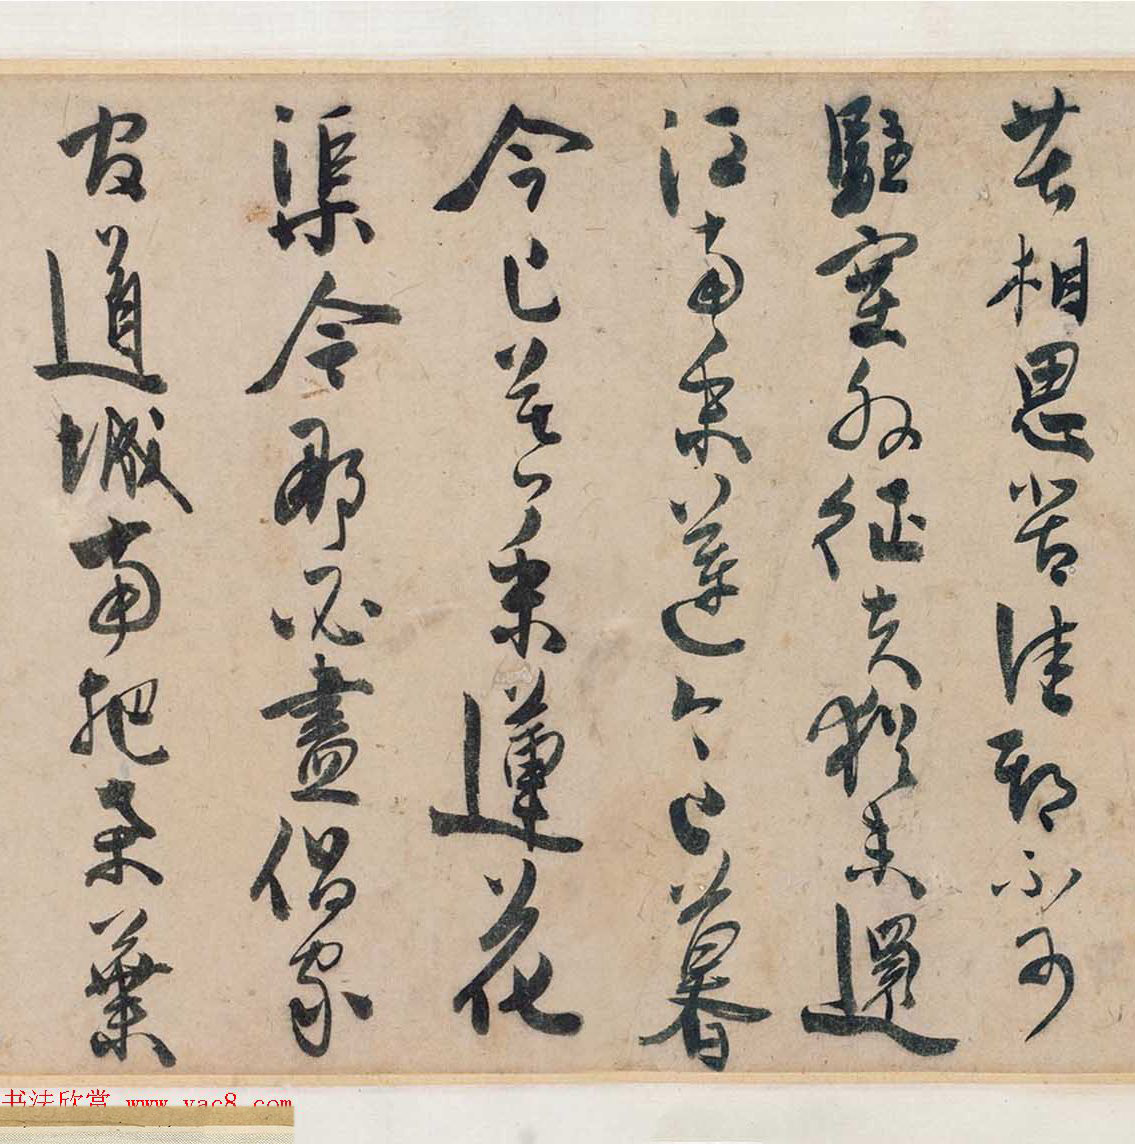 苦相思苦佳期不可
駐塞外征夫猶未還
江南采蓮今已暮
今已暮采蓮花
渠今那必盡倡家
官道城南把桑葉
书法欣赏 www.yac8.com